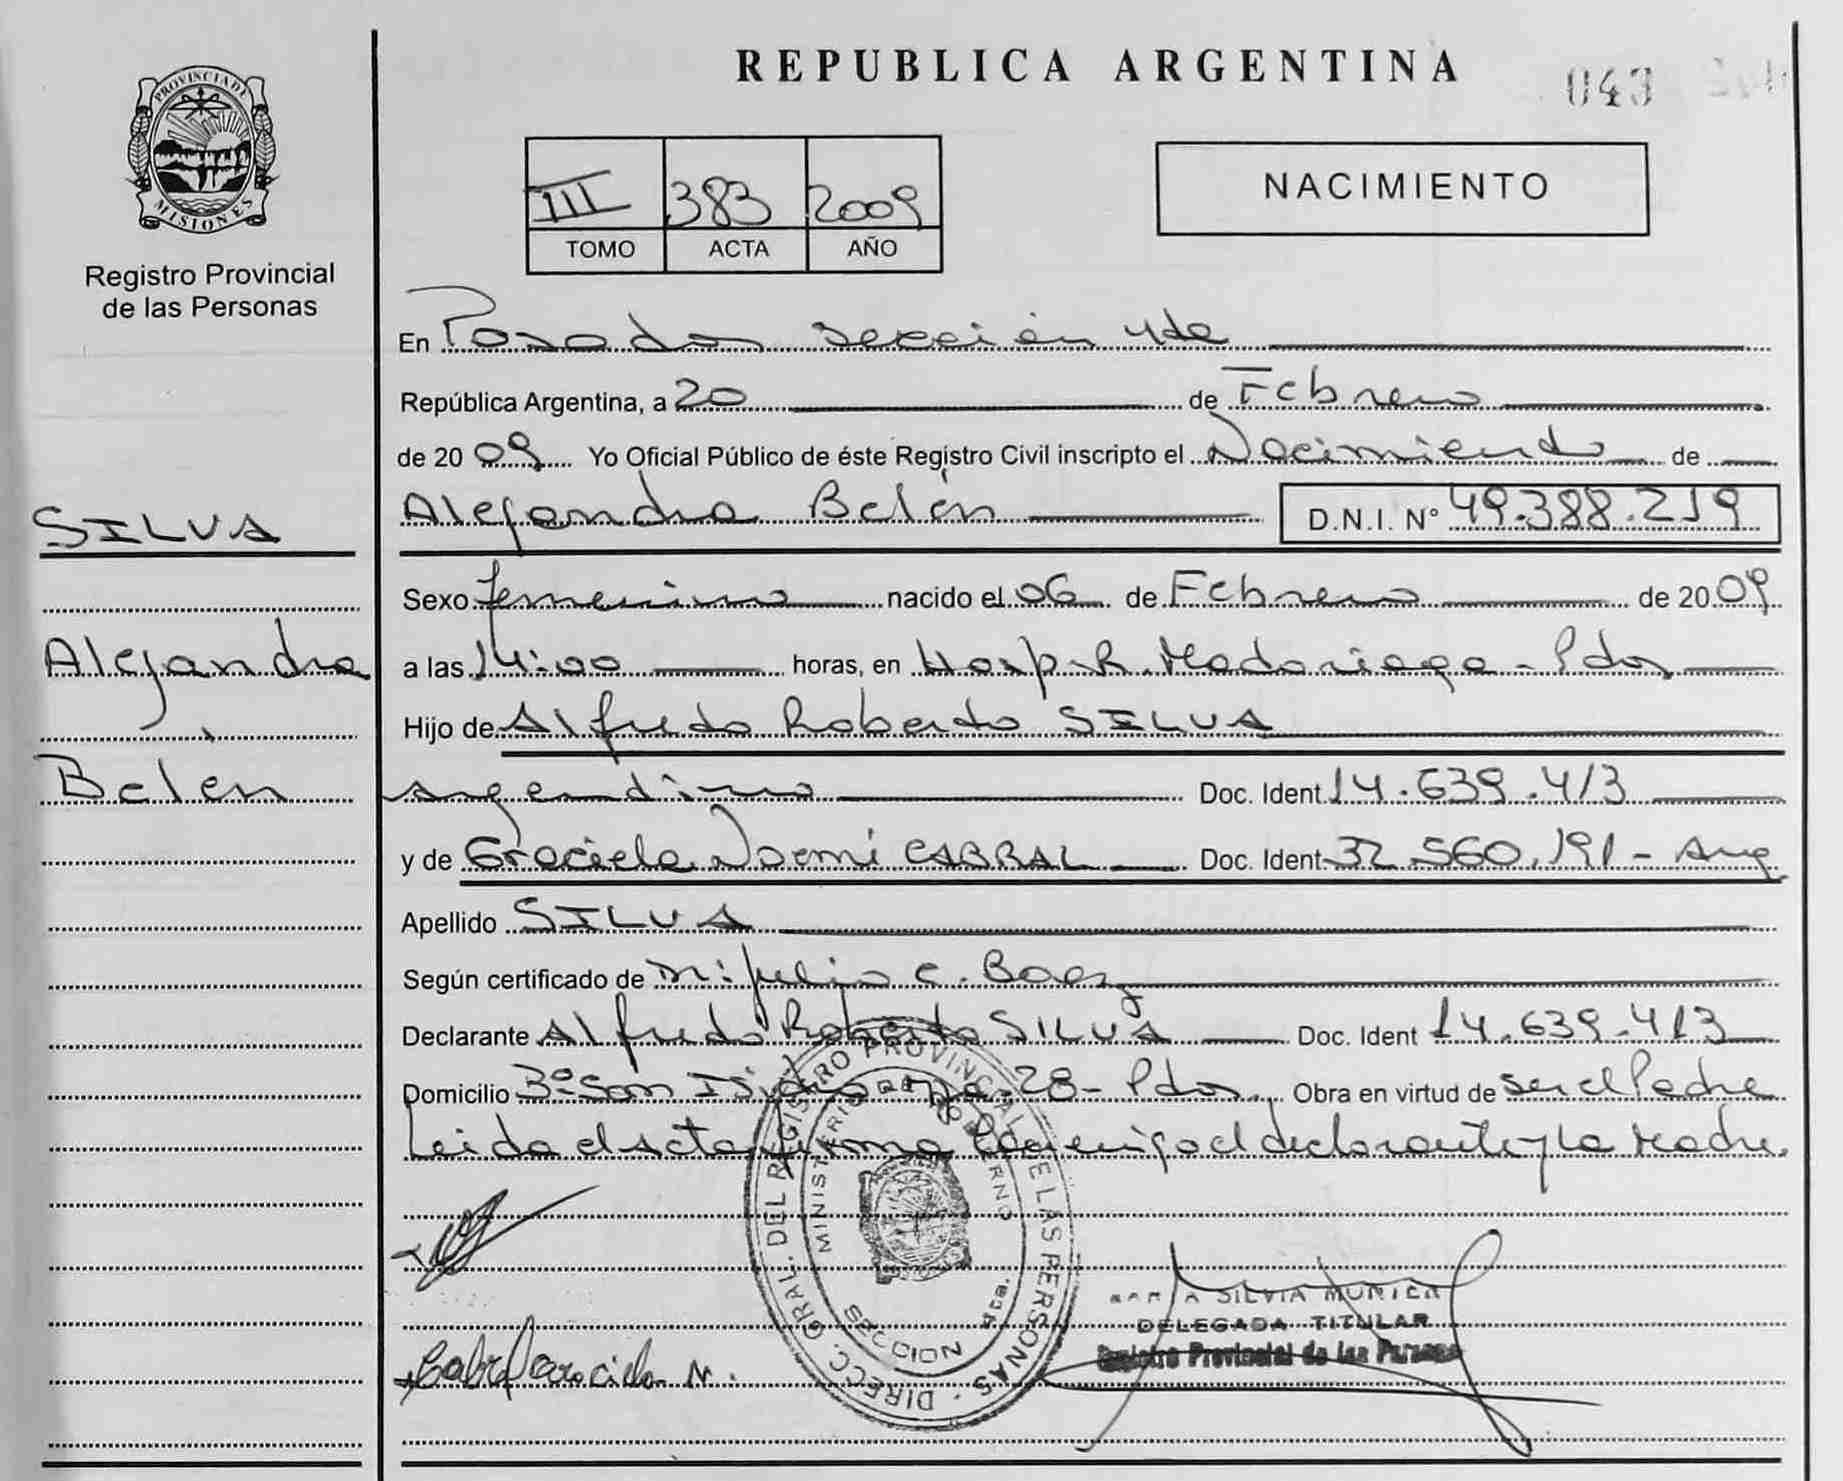 REPUBLICA ARGENTINA
043
PROVINCIA DE
MISIONES
Registro Provincial
de las Personas
III 383 2009
TOMO ACTA AÑO
NACIMIENTO
En Posadas sección 4ta
República Argentina, a 20 de Febrero
de 2009 Yo Oficial Público de éste Registro Civil inscripto el Nacimiento de
SILVA
Alejandra Belén D.N.I. Nº 49.388.219
Sexo femenino nacido el 06 de Febrero de 2009
Alejandra
a las 14:00 horas, en Hosp. R. Madariaga - Pdas
Hijo de Alfredo Roberto SILVA
Belén
argentino Doc. Ident. 14.639.413
y de Graciela Noemi CABRAL Doc. Ident. 32.560.191 - Arg
Apellido SILVA
Según certificado de Julio C. Baez
Declarante Alfredo Roberto SILVA Doc. Ident 14.639.413
Domicilio 3º San 28 - Pdas. Obra en virtud de ser el Padre
Leida el acta firma conmigo el declarante y la Madre.
DIRECC. GRAL. DEL REGISTRO PROVINCIAL DE LAS PERSONAS
MINISTERIO DE GOBIERNO
SECCION 4ta.
SILVIA
DELEGADA TITULAR
Registro Provincial de las Personas
Cabral Graciela N.